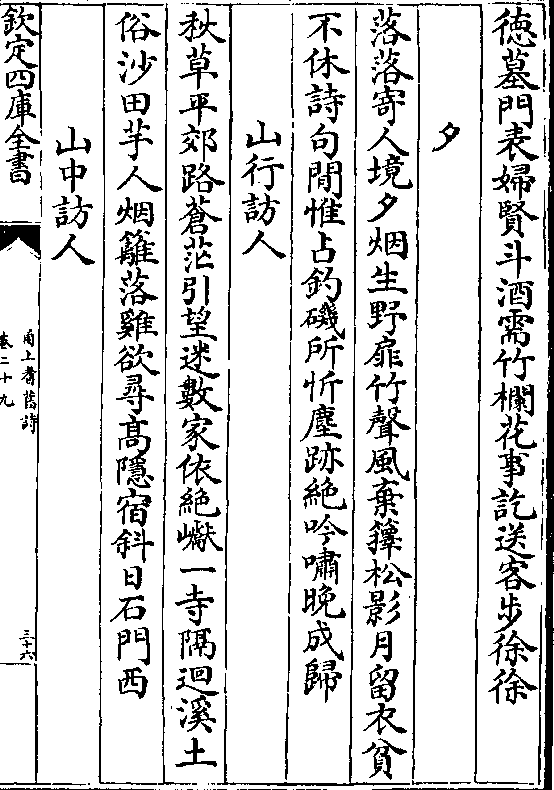 徳墓門表婦賢斗酒需竹欄花事訖送客歩徐徐
夕
落落寄人境夕烟生野扉竹聲風棄籜松影月留衣貧
不休詩句閒惟占釣磯所忻塵跡絶吟嘯晚成歸
山行訪人
秋草平郊路蒼茫引望迷數家依絶巘一寺隔迴溪土
俗沙田芋人烟籬落雞欲尋髙隱宿斜日石門西
山中訪人
欽定四庫全書
甬上耆舊詩
卷二十九
三十六